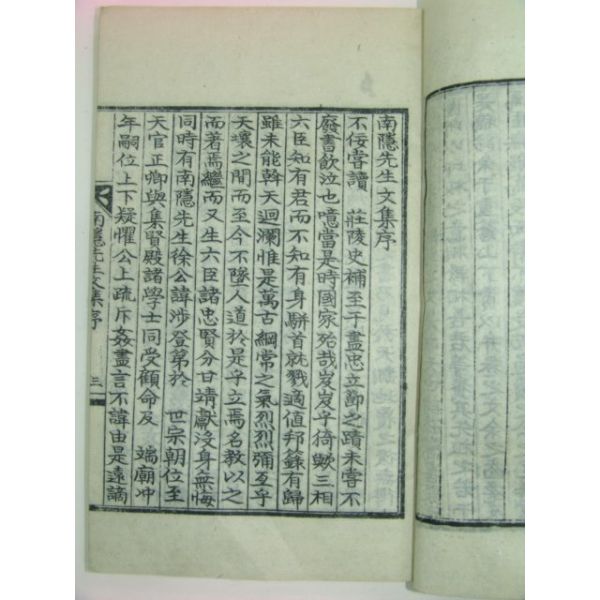 南隱先生文集序
不佞嘗讀 莊陵史補至于盡忠立節之蹟未嘗不
廢書飮泣也噫當是時國家殆哉岌岌乎猗歟三相
六臣知有君而不知有身騈首就戮適値邦籙有歸
雖未能斡天迴瀾惟是萬古綱常之氣烈烈彌亙乎
天壤之間而至今不墜人道於是乎立焉名教以之
而著焉繼而又生六臣諸忠賢分甘靖獻沒身無悔
同時有南隱先生徐公諱涉登第於 世宗朝位至
天官正卿與集賢殿諸學士同受顧命及 端廟冲
年嗣位上下疑懼公上疏斥姦盡言不諱由是遠謫
南隱先生文集序 三